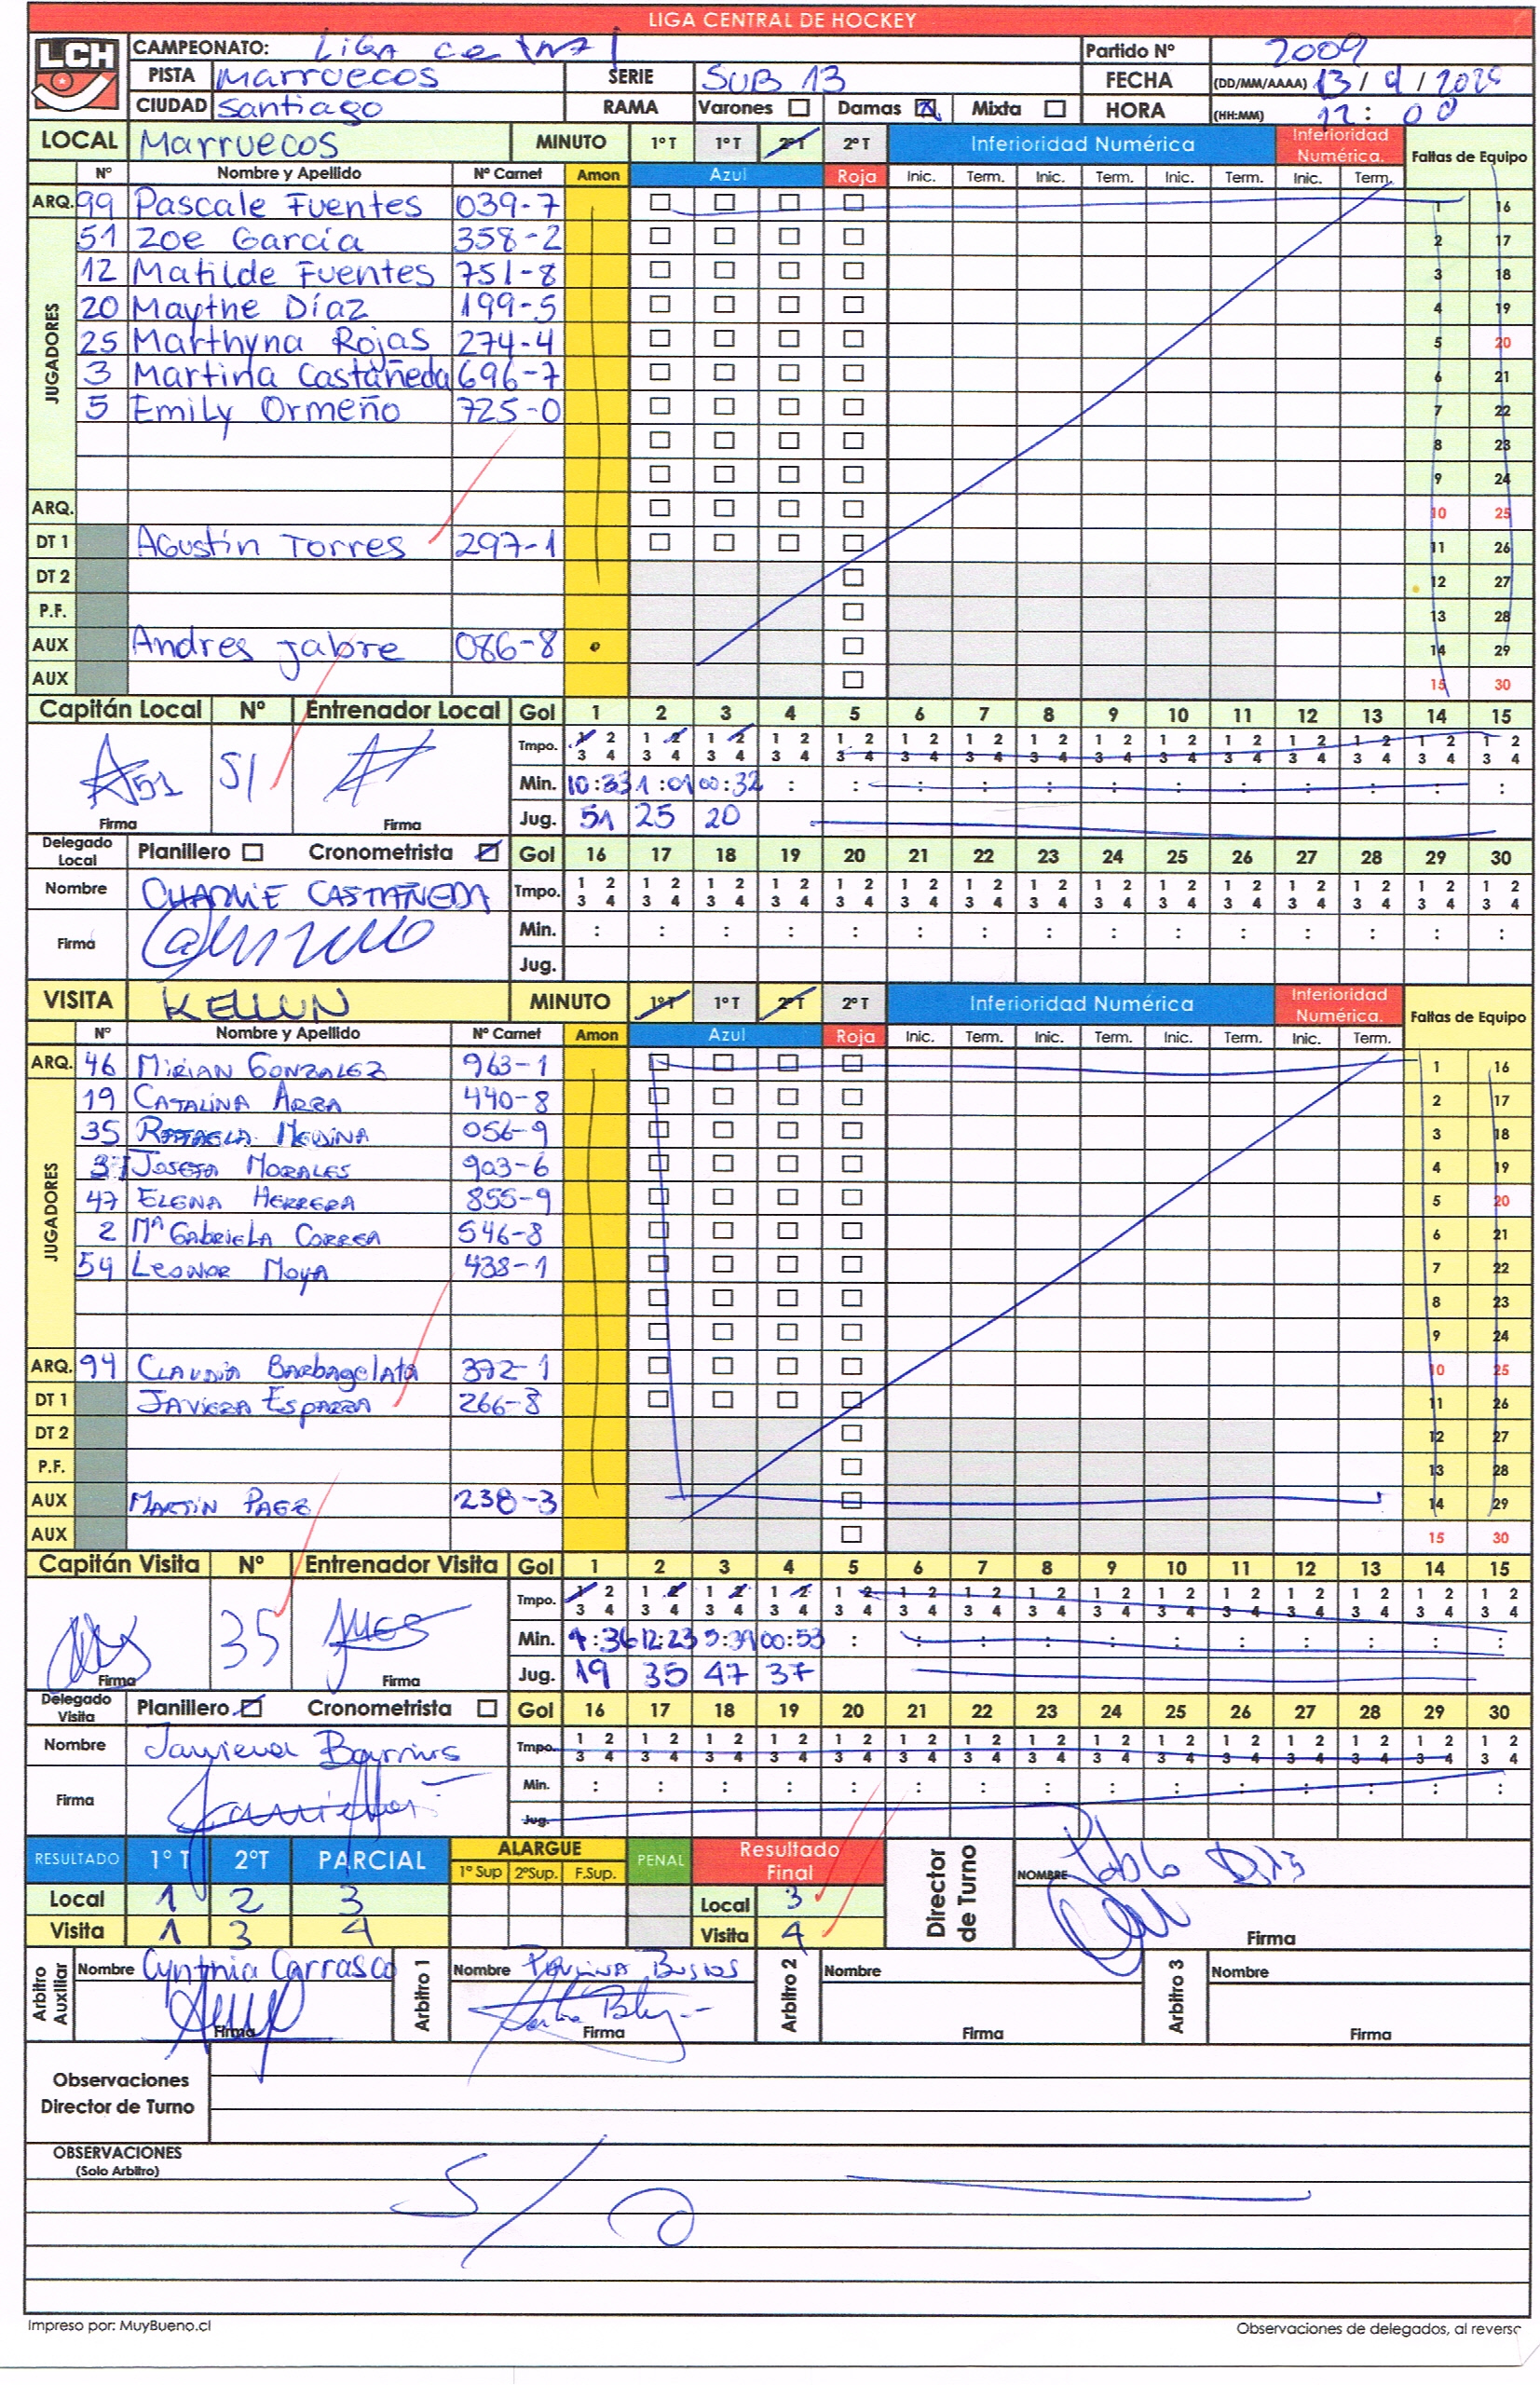 LIGA CENTRAL DE HOCKEY
LCH
CAMPEONATO: Liga central Partido Nº 2009
PISTA Marruecos SERIE SUB 13 FECHA (DD/MM/AAAA) 13 / 9 / 2025
CIUDAD Santiago RAMA Varones Damas Mixta HORA (HH:MM) 12:00
LOCAL Marruecos MINUTO 1º T 1º T 2º T 2º T Inferioridad Numérica Inferioridad Numérica. Faltas de Equipo
Nº Nombre y Apellido Nº Carnet Amon Azul Roja Inic. Term. Inic. Term. Inic. Term. Inic. Term.
ARQ. 99 Pascale Fuentes 039-7 1 16
JUGADORES
51 Zoe Garcia 358-2 2 17
12 Matilde Fuentes 751-8 3 18
20 Maythe Díaz 199-5 4 19
25 Marthyna Rojas 274-4 5 20
3 Martina Castañeda 696-7 6 21
5 Emily Ormeño 725-0 7 22
8 23
9 24
ARQ. 10 25
DT 1 Agustín Torres 297-1 11 26
DT 2 12 27
P.F. 13 28
AUX Andres Jabre 086-8 14 29
AUX 15 30
Capitán Local Nº Entrenador Local Gol 1 2 3 4 5 6 7 8 9 10 11 12 13 14 15
Tmpo. 1 2 3 4 1 2 3 4 1 2 3 4 1 2 3 4 1 2 3 4 1 2 3 4 1 2 3 4 1 2 3 4 1 2 3 4 1 2 3 4 1 2 3 4 1 2 3 4 1 2 3 4 1 2 3 4 1 2 3 4
51 Min. 10:33 1:01 00:32 : : : : : : : : : : : :
Firma Firma Jug. 51 25 20
Delegado Local Planillero Cronometrista Gol 16 17 18 19 20 21 22 23 24 25 26 27 28 29 30
Nombre CHARLIE CASTAÑEDA Tmpo. 1 2 3 4 1 2 3 4 1 2 3 4 1 2 3 4 1 2 3 4 1 2 3 4 1 2 3 4 1 2 3 4 1 2 3 4 1 2 3 4 1 2 3 4 1 2 3 4 1 2 3 4 1 2 3 4 1 2 3 4
Firma Min. : : : : : : : : : : : : : : :
Jug.
VISITA KELLUN MINUTO 1º T 1º T 2º T 2º T Inferioridad Numérica Inferioridad Numérica. Faltas de Equipo
Nº Nombre y Apellido Nº Carnet Amon Azul Roja Inic. Term. Inic. Term. Inic. Term. Inic. Term.
ARQ. 46 Mirian Gonzalez 963-1 1 16
JUGADORES
19 Catalina Arza 440-8 2 17
35 Rafaela Medina 056-9 3 18
37 Josefa Morales 903-6 4 19
47 Elena Herrera 855-9 5 20
2 Mª Gabriela Correa 546-8 6 21
54 Leonor Moya 438-1 7 22
8 23
9 24
ARQ. 94 Claudia Barbagelata 372-1 10 25
DT 1 Javiera Esparza 266-8 11 26
DT 2 12 27
P.F. 13 28
AUX Martín Paez 238-3 14 29
AUX 15 30
Capitán Visita Nº Entrenador Visita Gol 1 2 3 4 5 6 7 8 9 10 11 12 13 14 15
Tmpo. 1 2 3 4 1 2 3 4 1 2 3 4 1 2 3 4 1 2 3 4 1 2 3 4 1 2 3 4 1 2 3 4 1 2 3 4 1 2 3 4 1 2 3 4 1 2 3 4 1 2 3 4 1 2 3 4 1 2 3 4
35 Min. 4:36 12:23 5:39 00:53 : : : : : : : : : : :
Firma Firma Jug. 19 35 47 37
Delegado Visita Planillero Cronometrista Gol 16 17 18 19 20 21 22 23 24 25 26 27 28 29 30
Nombre Javiera Barrios Tmpo. 1 2 3 4 1 2 3 4 1 2 3 4 1 2 3 4 1 2 3 4 1 2 3 4 1 2 3 4 1 2 3 4 1 2 3 4 1 2 3 4 1 2 3 4 1 2 3 4 1 2 3 4 1 2 3 4 1 2 3 4
Firma Min. : : : : : : : : : : : : : : :
Jug.
RESULTADO 1º T 2ºT PARCIAL ALARGUE 1º Sup 2ºSup. F.Sup. PENAL Resultado Final Director de Turno NOMBRE Pablo
Local 1 2 3 Local 3
Visita 1 3 4 Visita 4 Firma
Arbitro Auxiliar Nombre Cynthia Carrasco Arbitro 1 Nombre Paulina Bustos Arbitro 2 Nombre Arbitro 3 Nombre
Firma Firma Firma Firma
Observaciones
Director de Turno
OBSERVACIONES
(Solo Arbitro)
S/O
Impreso por: MuyBueno.cl Observaciones de delegados, al reverso